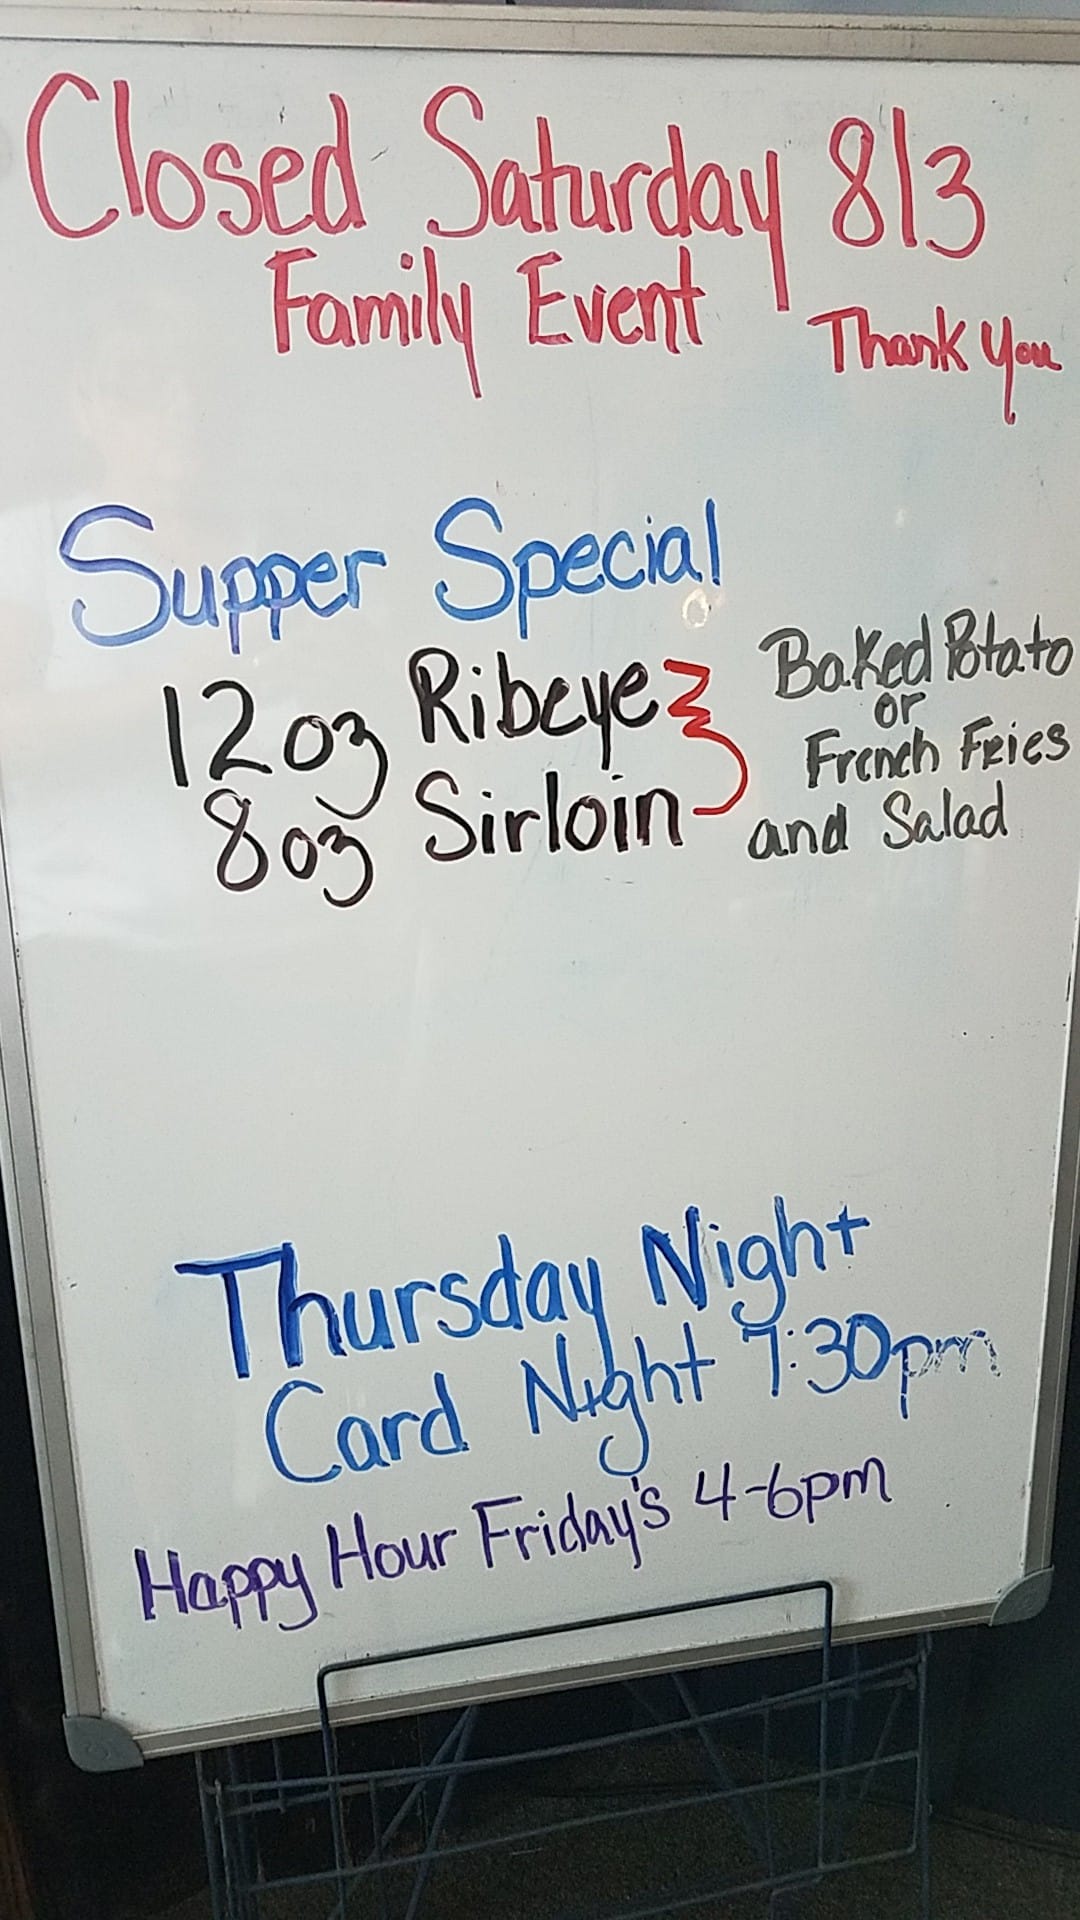 Closed Saturday 8/3
Family Event
Thank you
Supper Special
12oz Ribeye
8oz Sirloin
Baked Potato
or
French Fries
and Salad
Thursday Night
Card Night 7:30pm
Happy Hour Friday's 4-6pm